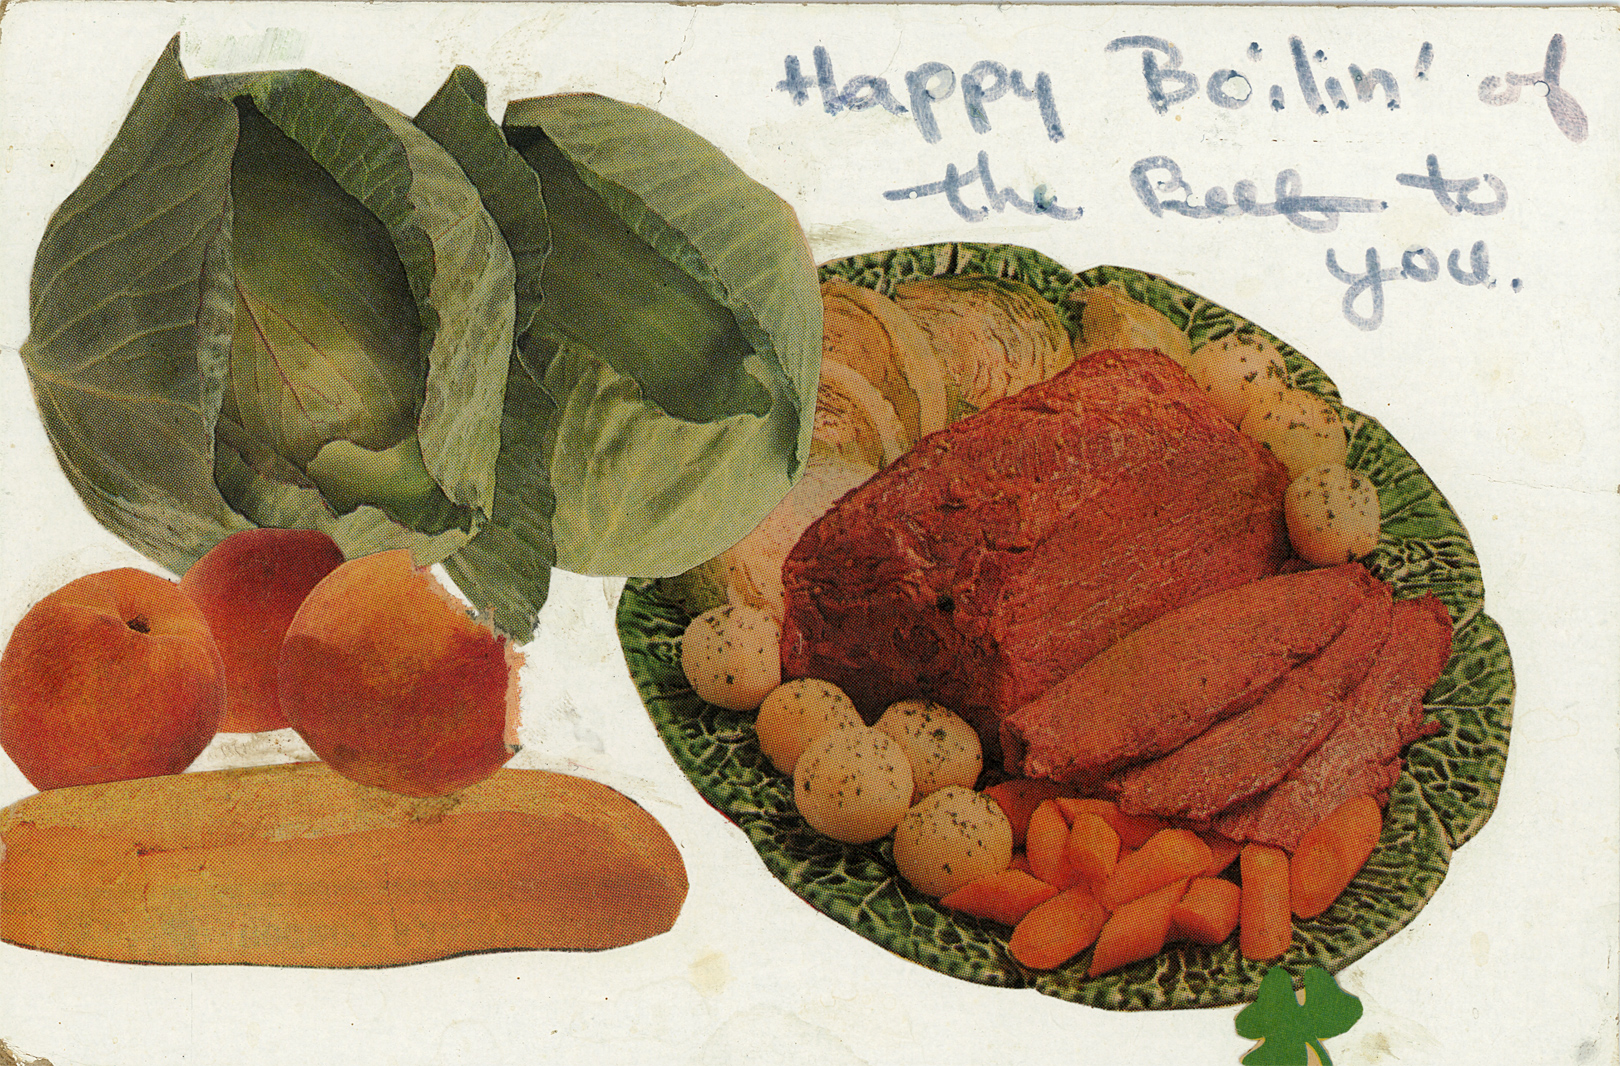 Happy Boilin' of
the Beef to
you.